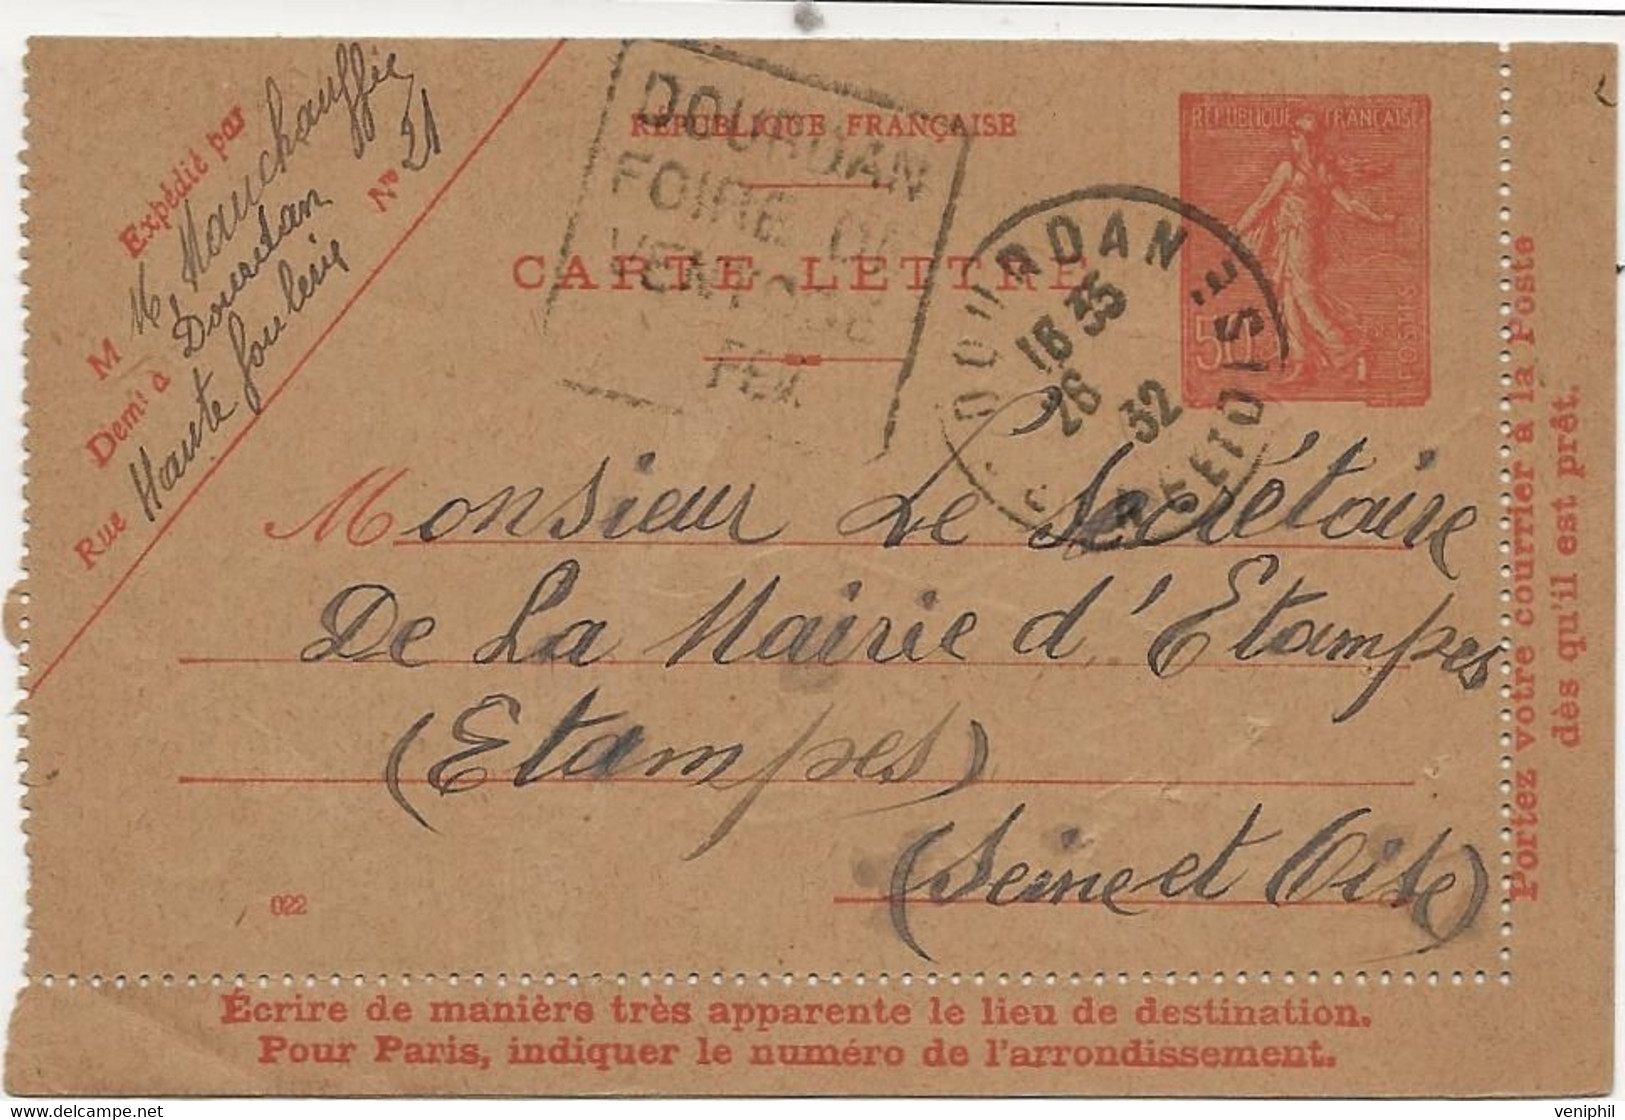 Expédié par
M M. Mauchauffée
Demt à Dourdan
Rue Haute foulerie Nº 21
DOURDAN
FOIRE DE
VENTOSE
FEV.
RÉPUBLIQUE FRANÇAISE
CARTE-LETTRE
DOURDAN
16 35
26
32
SEINE ET OISE
RÉPUBLIQUE FRANÇAISE
50
POSTES
Monsieur Le Secrétaire
De La Mairie d'Etampes
(Etampes)
(Seine et Oise)
022
Portez votre courrier à la Poste
dès qu'il est prêt.
Écrire de manière très apparente le lieu de destination.
Pour Paris, indiquer le numéro de l'arrondissement.
www.delcampe.net
veniphil